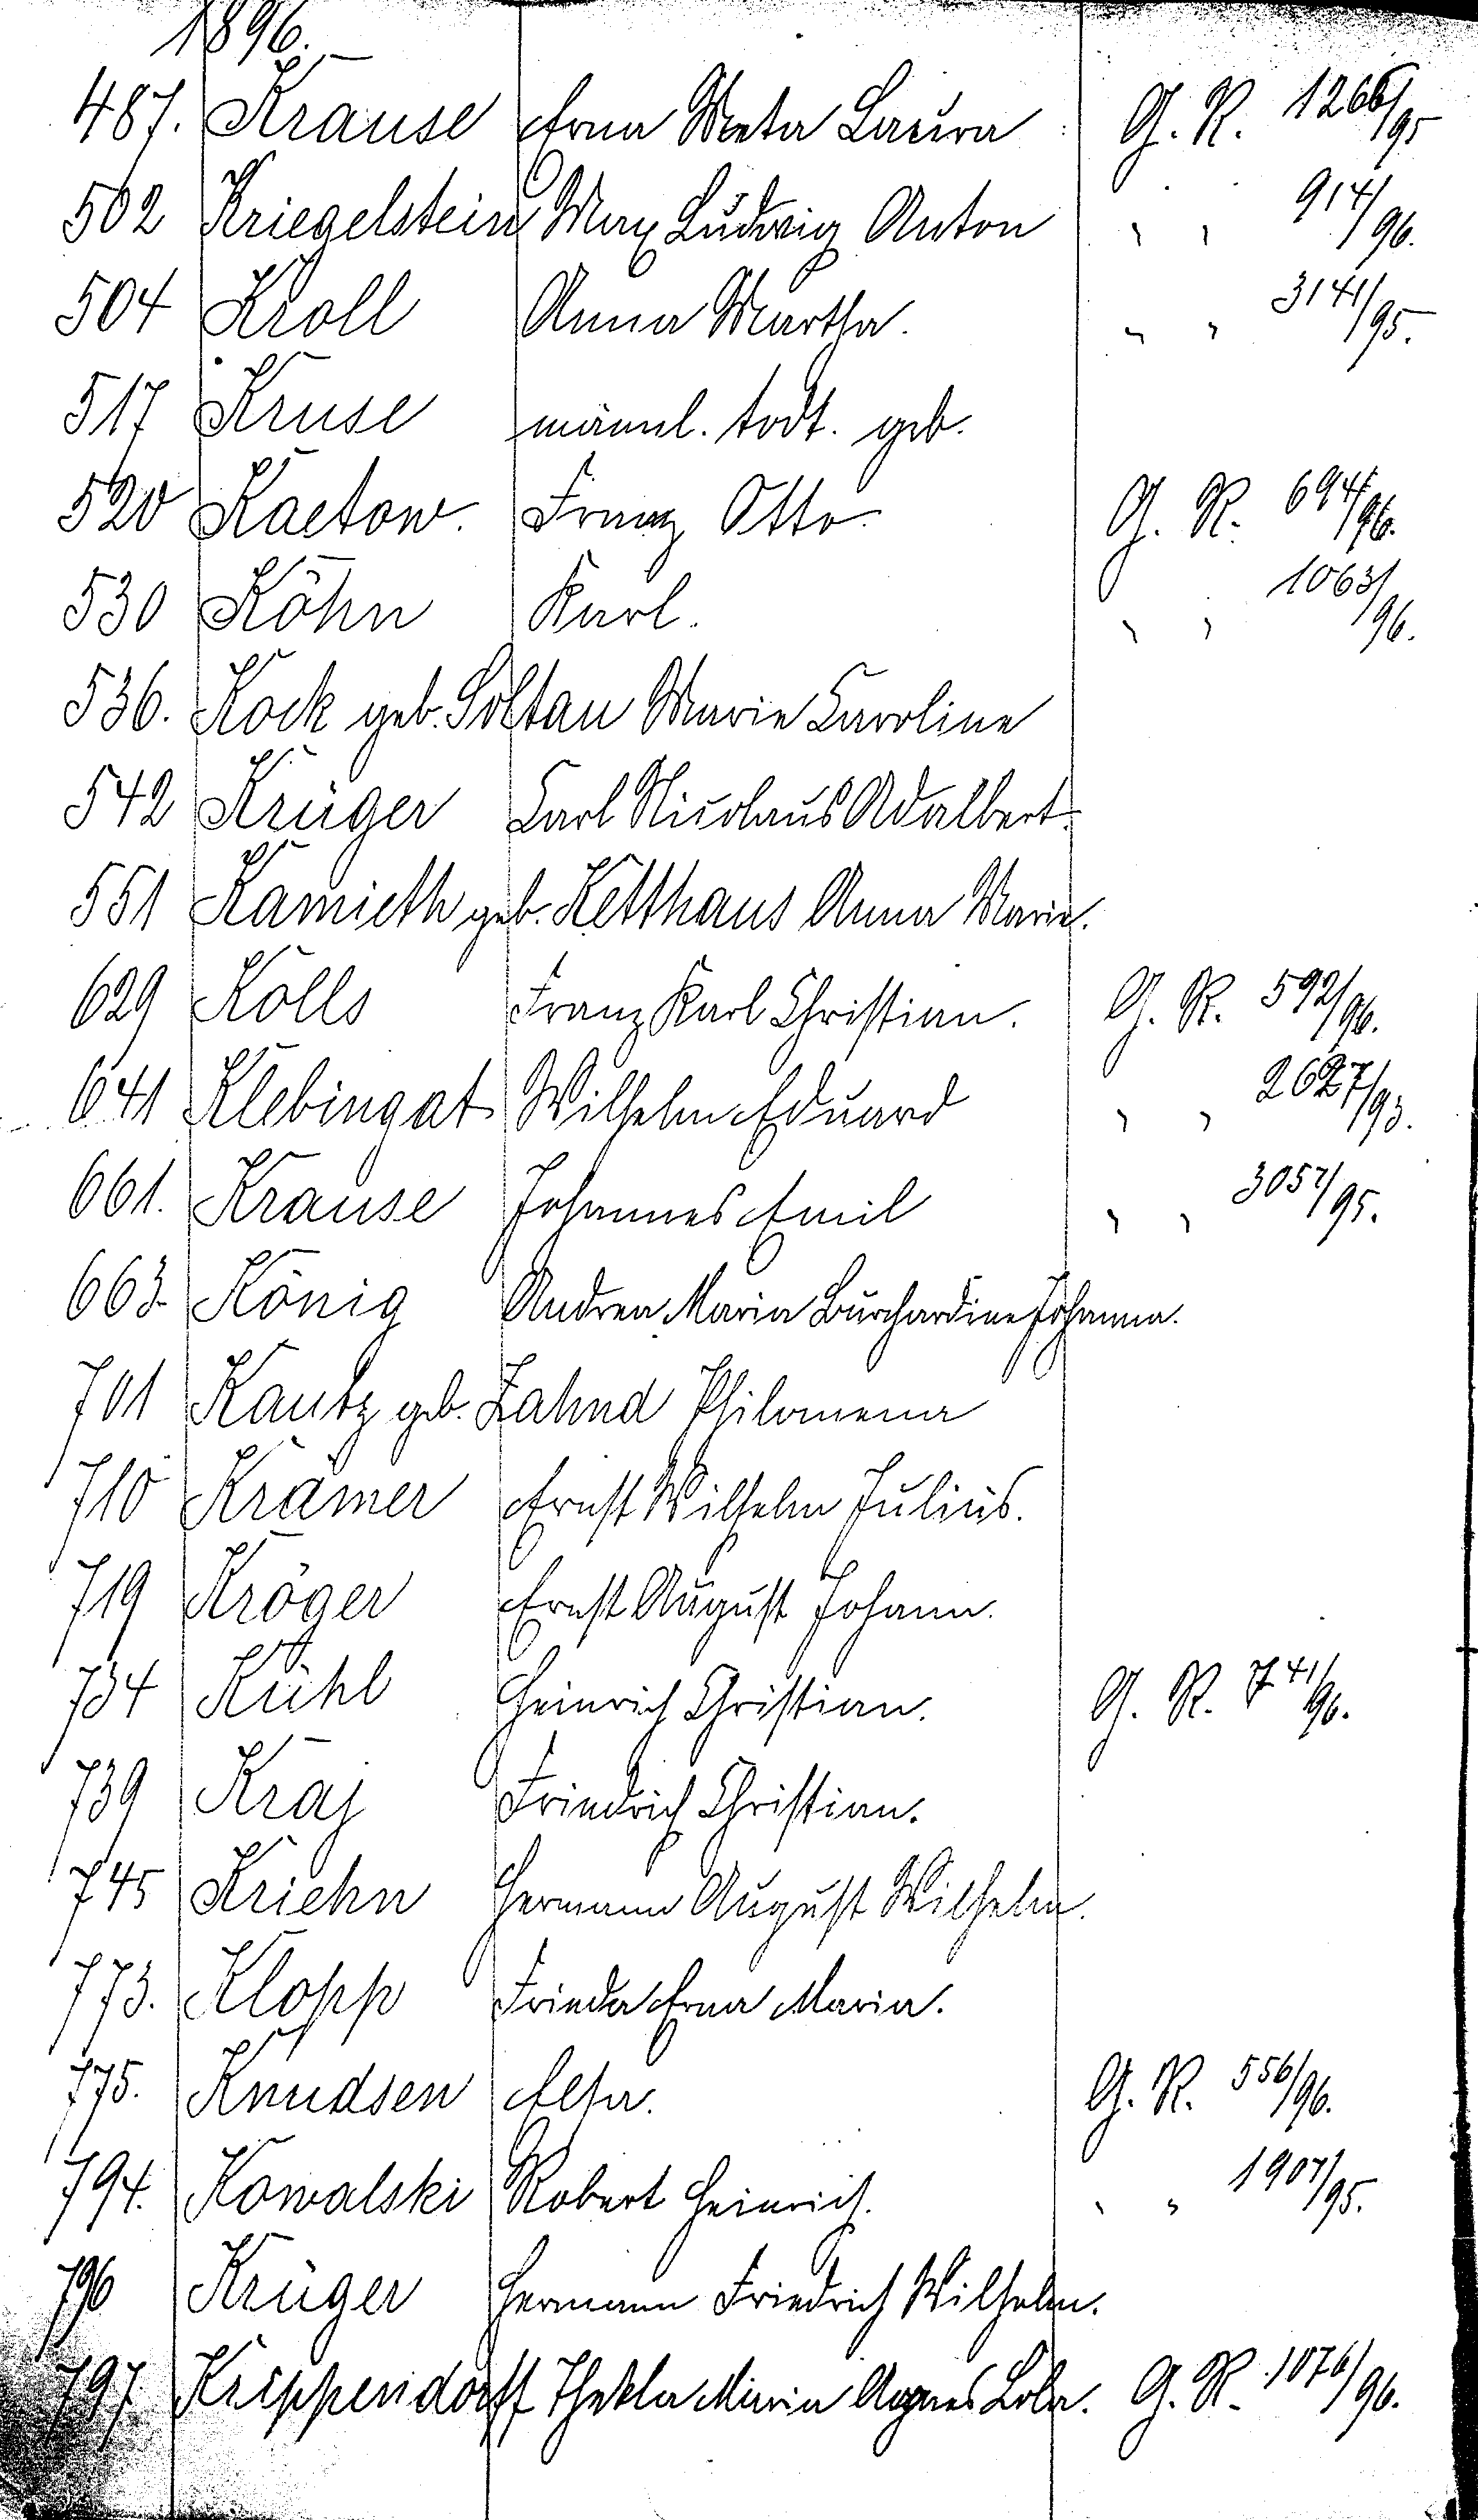 1896.
487. Krause Erna Meta Laura G. R. 1266/95
502 Kriegelstein Max Ludwig Anton " " 914/96.
504 Kroll Anna Martha. " " 3141/95.
517 Kruse männl. todt. geb.
520 Kaetow. Franz Otto. G. R. 694/96.
530 Köhn Karl. " " 1063/96.
536. Kock geb. Soltau Marie Caroline
542 Krüger Carl Nicolaus Adalbert.
551 Kamieth geb. Ketthaus Anna Marie.
629 Kölls Franz Karl Christian. G. R. 592/96.
641 Klebingat Wilhelm Eduard " " 2627/93.
661. Krause Johannes Emil " " 3057/95.
663. König Andrea Maria Burchardine Johanna.
701 Kautz geb. Zahnd Philomena
710 Krämer Ernst Wilhelm Julius.
719 Kröger Ernst August Johann.
734 Kühl Heinrich Christian. G. R. 741/96.
739 Kraj Friedrich Christian.
745 Kriehn Hermann August Wilhelm.
773. Klopp Frieda Erna Maria.
775. Knudsen Elsa. G. R. 556/96.
794. Kowalski Robert Heinrich. " " 1907/95.
796 Krüger Hermann Friedrich Wilhelm.
797 Krippendorff Thekla Maria Agnes Lola. G. R. 1076/96.